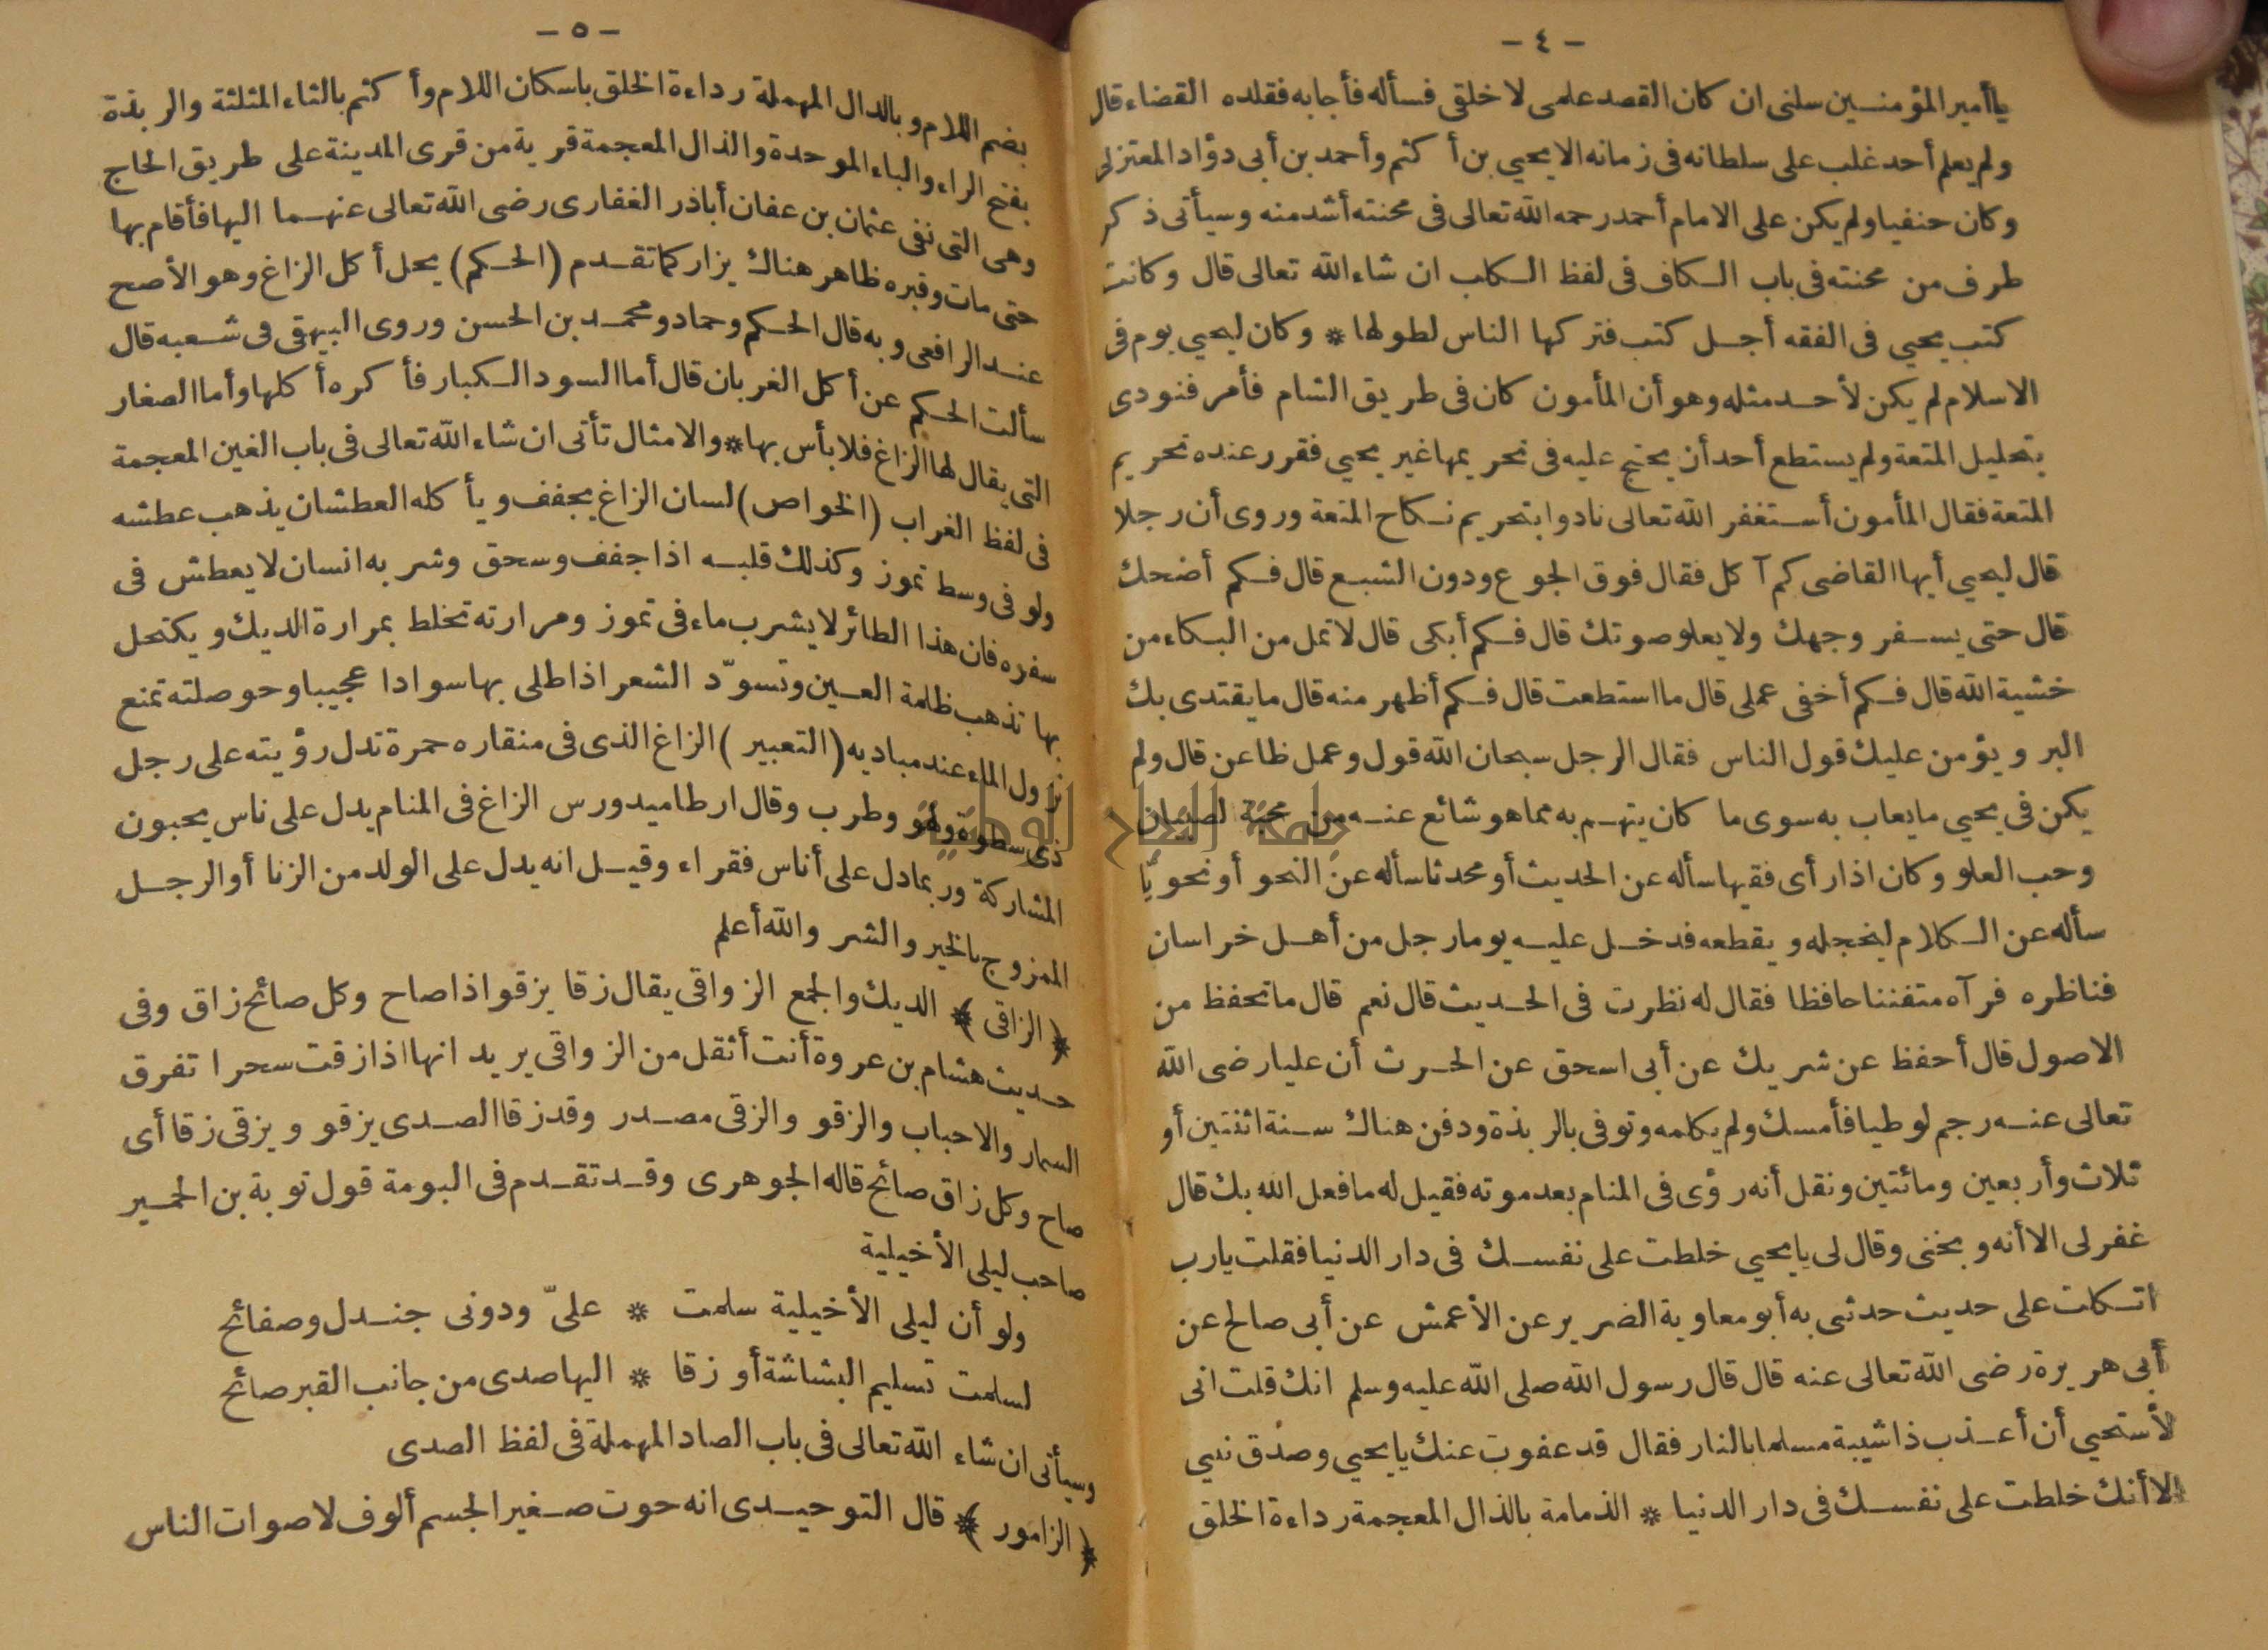 – ٤ –
يا أمير المؤمنين سلنى ان كان القصد علمى لا خلقى فسأله فأجابه فقلده القضاء قال
ولم يعلم أحد غلب على سلطانه فى زمانه الا يحيى بن أكثم وأحمد بن أبى دؤاد المعتزلى
وكان حنفيا ولم يكن على الامام أحمد رحمه الله تعالى فى محنته أشد منه وسيأتى ذكر
طرف من محنته فى باب الكاف فى لفظ الكلب ان شاء الله تعالى قال وكانت
كتب يحيى فى الفقه أجل كتب فتركها الناس لطولها * وكان ليحيى يوم فى
الاسلام لم يكن لأحد مثله وهو أن المأمون كان فى طريق الشام فأمر فنودى
بتحليل المتعة ولم يستطع أحد أن يحتج عليه فى تحريمها غير يحيى فقرر عنده تحريم
المتعة فقال المأمون أستغفر الله تعالى نادوا بتحريم نكاح المتعة وروى أن رجلا
قال ليحيى أيها القاضى كم آكل فقال فوق الجوع ودون الشبع قال فكم أضحك
قال حتى يسفر وجهك ولا يعلو صوتك قال فكم أبكى قال لا تمل من البكاء من
خشية الله قال فكم أخفى عملى قال ما استطعت قال فكم أظهر منه قال ما يقتدى بك
البر ويؤمن عليك قول الناس فقال الرجل سبحان الله قول وعمل ظاعن قال ولم
يكن فى يحيى ما يعاب به سوى ما كان يتهم به مما هو شائع عنه من محبة الصبيان
وحب العلو وكان اذا رأى فقيها سأله عن الحديث أو محدثا سأله عن النحو أو نحويّا
سأله عن الكلام ليخجله ويقطعه فدخل عليه يوما رجل من أهل خراسان
فناظره فرآه متفننا حافظا فقال له نظرت فى الحديث قال نعم قال ما تحفظ من
الاصول قال أحفظ عن شريك عن أبى اسحق عن الحرث أن عليا رضى الله
تعالى عنه رجم لوطيا فأمسك ولم يكلمه وتوفى بالربذة ودفن هناك سنة اثنتين أو
ثلاث وأربعين ومائتين ونقل أنه رؤى فى المنام بعد موته فقيل له ما فعل الله بك قال
غفر لى الا أنه وبخنى وقال لى يا يحيى خلطت على نفسك فى دار الدنيا فقلت يارب
اتكلت على حديث حدثنى به أبو معاوية الضرير عن الأعمش عن أبى صالح عن
أبى هريرة رضى الله تعالى عنه قال قال رسول الله صلى الله عليه وسلم انك قلت انى
لأستحيى أن أعذب ذا شيبة مسلما بالنار فقال قد عفوت عنك يا يحيى وصدق نبيى
الا أنك خلطت على نفسك فى دار الدنيا * الذمامة بالذال المعجمة رداءة الخلق
– ٥ –
بضم اللام وبالدال المهملة رداءة الخلق باسكان اللام وأكثم بالثاء المثلثة والربذة
بفتح الراء والباء الموحدة والذال المعجمة قرية من قرى المدينة على طريق الحاج
وهى التى نفى عثمان بن عفان أباذر الغفارى رضى الله تعالى عنهما اليها فأقام بها
حتى مات وقبره ظاهر هناك يزار كما تقدم (الحكم) يحل أكل الزاغ وهو الأصح
عند الرافعى وبه قال الحكم وحماد ومحمد بن الحسن وروى البيهقى فى شعبه قال
سألت الحكم عن أكل الغربان قال أما السود الكبار فأكره أكلها وأما الصغار
التى يقال لها الزاغ فلا بأس بها * والامثال تأتى ان شاء الله تعالى فى باب الغين المعجمة
فى لفظ الغراب (الخواص) لسان الزاغ يجفف ويأكله العطشان يذهب عطشه
ولو فى وسط تموز وكذلك قلبه اذا جفف وسحق وشربه انسان لا يعطش فى
سفره فان هذا الطائر لا يشرب ماء فى تموز ومرارته تخلط بمرارة الديك ويكتحل
بها تذهب ظلمة العين وتسوّد الشعر اذا طلى بها سوادا عجيبا وحوصلته تمنع
نزول الماء عند مباديه (التعبير) الزاغ الذى فى منقاره حمرة تدل رؤيته على رجل
ذى سطوة ولهو وطرب وقال ارطاميدورس الزاغ فى المنام يدل على ناس يحبون
المشاركة وربما دل على أناس فقراء وقيل انه يدل على الولد من الزنا أو الرجل
الممزوج بالخير والشر والله أعلم
﴿الزاقى﴾ الديك والجمع الزواقى يقال زقا يزقو اذا صاح وكل صائح زاق وفى
حديث هشام بن عروة أنت أثقل من الزواقى يريد انها اذا زقت سحرا تفرق
السمار والاحباب والزقو والزقى مصدر وقد زقا الصدى يزقو ويزقى زقا أى
صاح وكل زاق صائح قاله الجوهرى وقد تقدم فى البومة قول توبة بن الحمير
صاحب ليلى الأخيلية
ولو أن ليلى الأخيلية سلمت * علىّ ودونى جندل وصفائح
لسلمت تسليم البشاشة أو زقا * اليها صدى من جانب القبر صائح
وسيأتى ان شاء الله تعالى فى باب الصاد المهملة فى لفظ الصدى
﴿الزامور﴾ قال التوحيدى انه حوت صغير الجسم ألوف لاصوات الناس
جامعة النجاح الوطنية